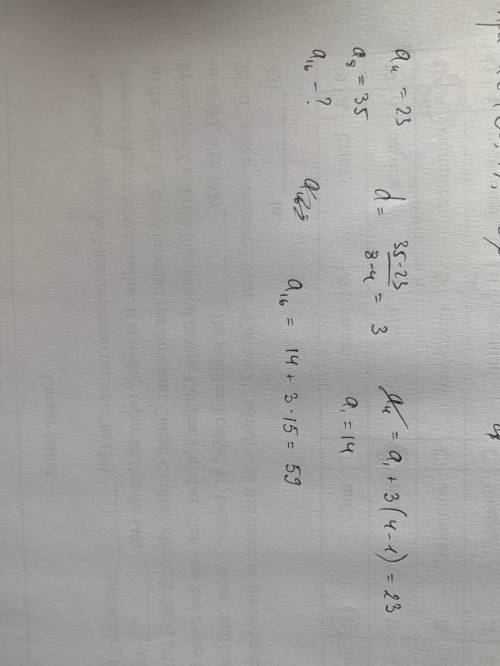 a₄ = 23
a₈ = 35
a₁₆ - ?
d = 35-23 / 8-4 = 3
a₄ = a₁ + 3(4-1) = 23
a₁ = 14
a₁₆ = 14 + 3·15 = 59